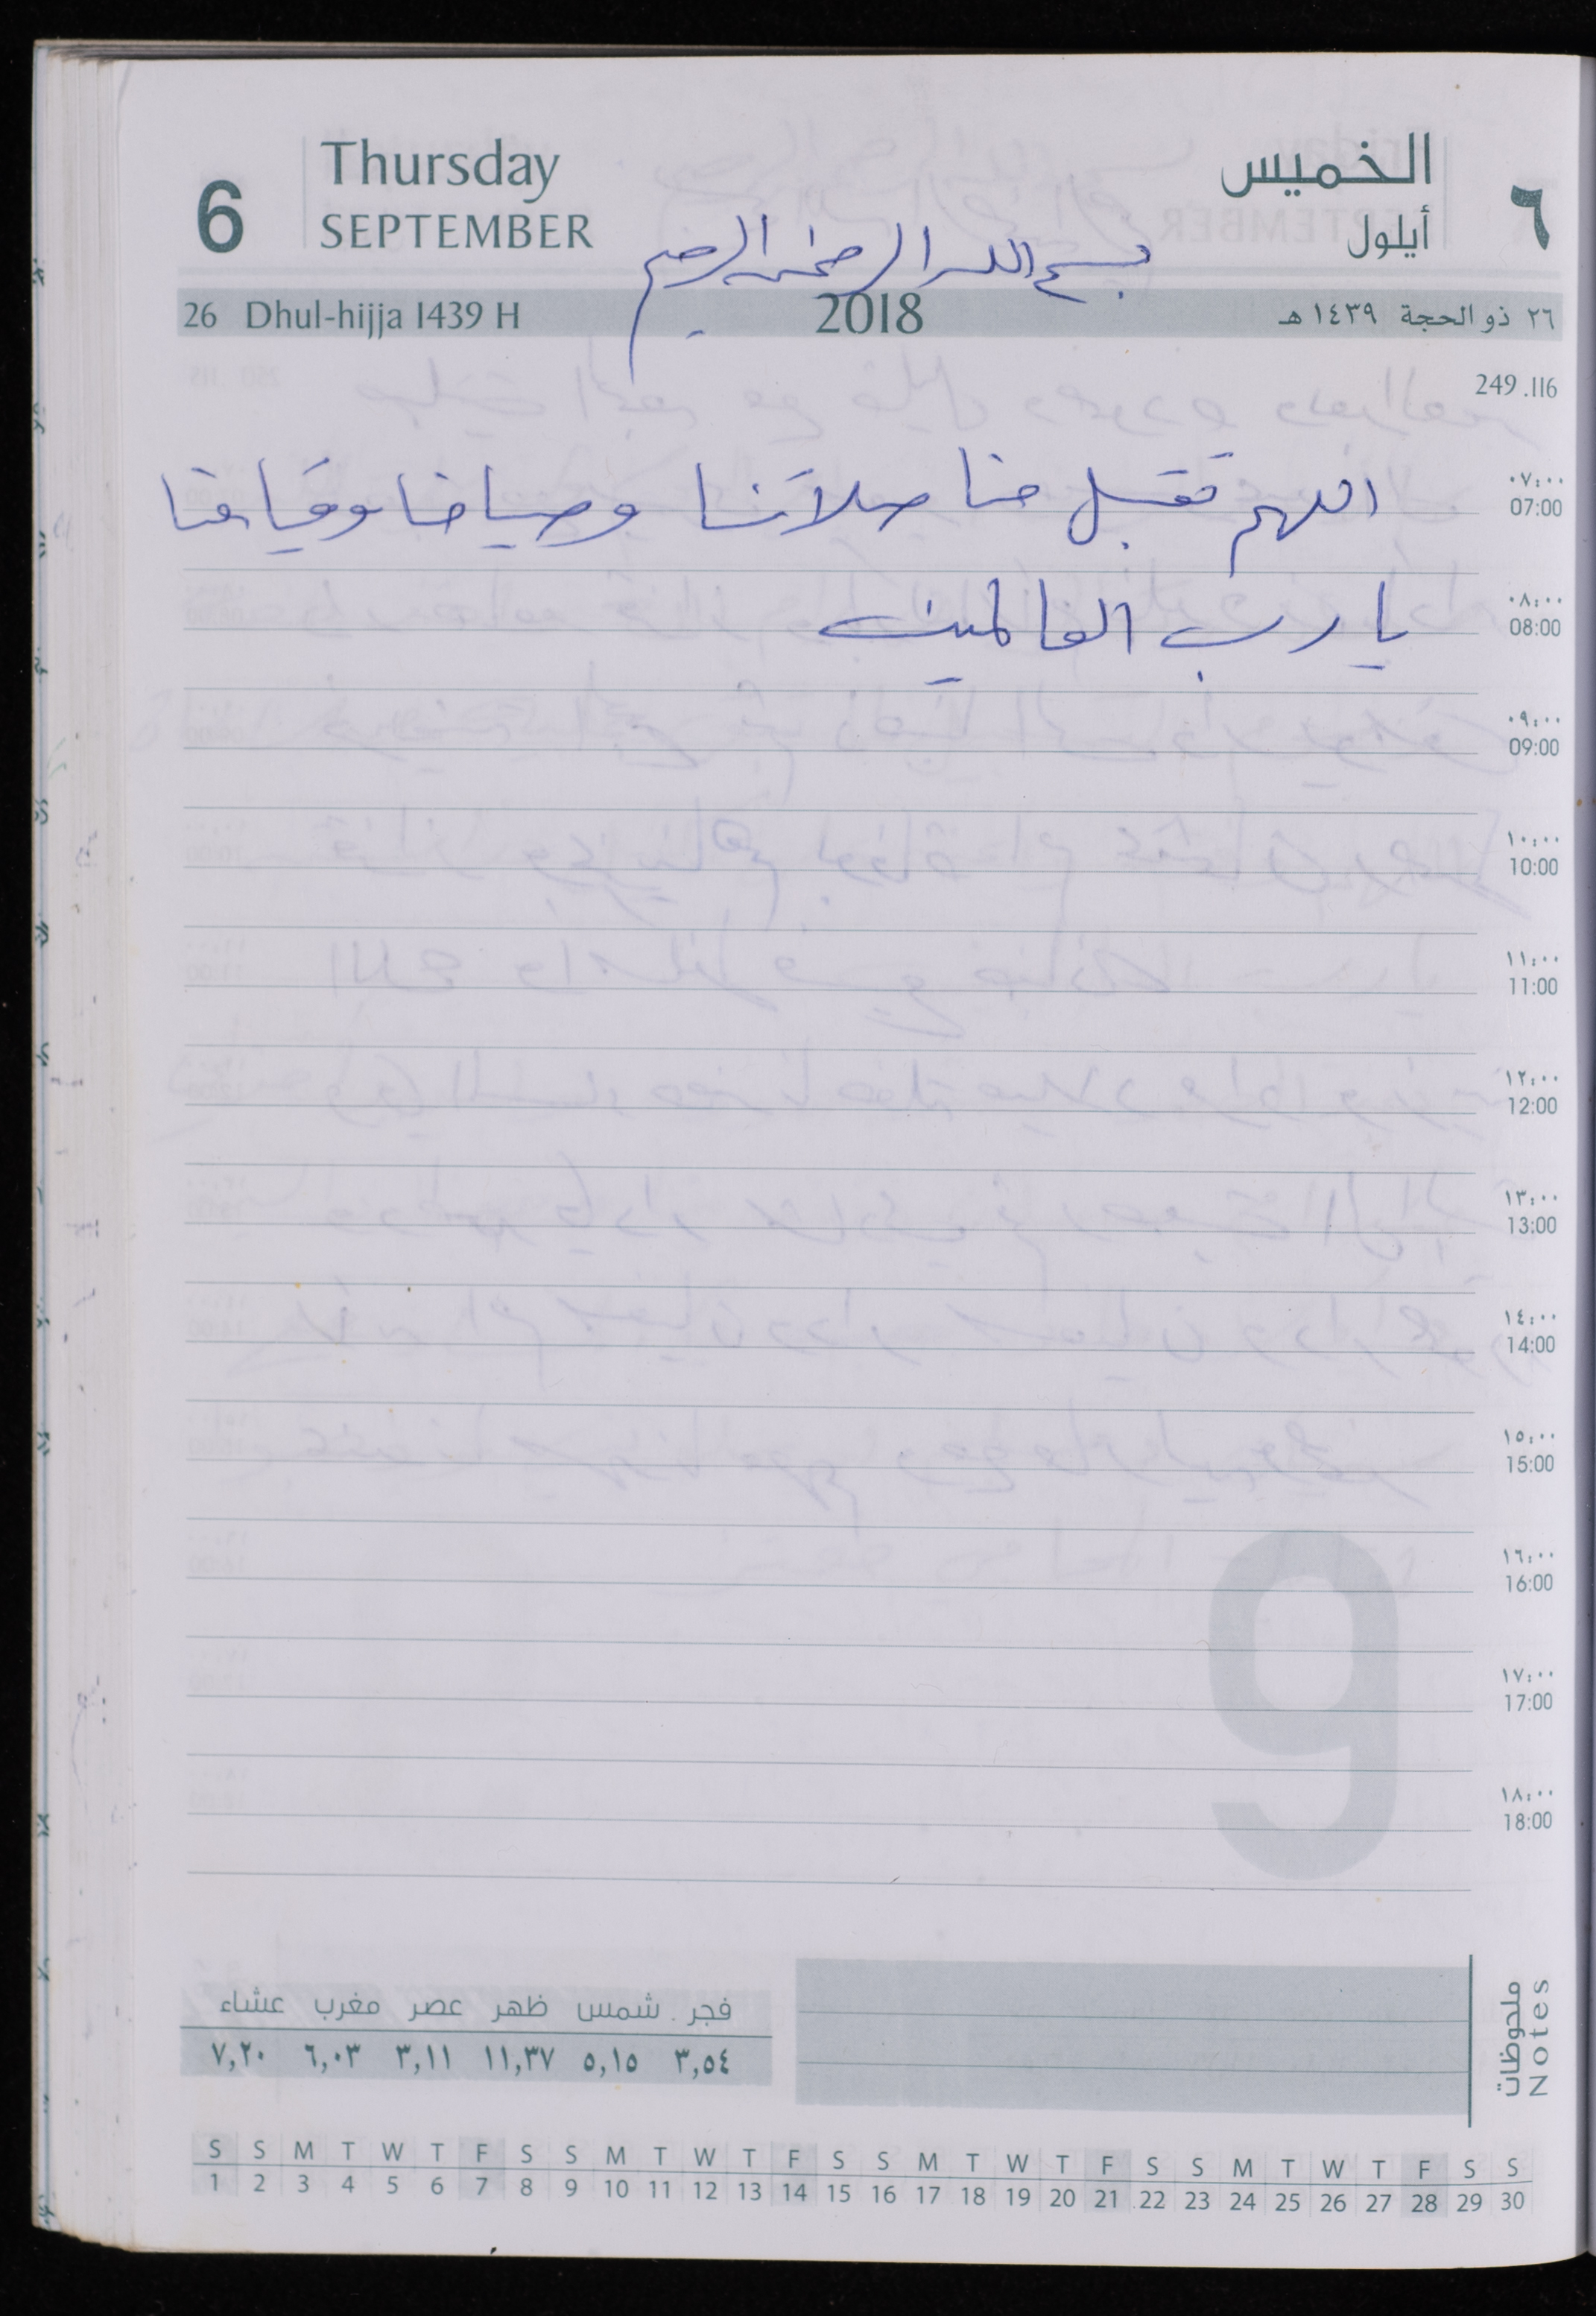 6 Thursday SEPTEMBER
٦ الخميس أيلول
بسم الله الرحمن الرحيم
26 Dhul-hijja 1439 H 2018 ٢٦ ذو الحجة ١٤٣٩ هـ
249 .116
اللهم تقبل منا صلاتنا وصيامنا وقيامنا
٠٧:٠٠
07:00
يا رب العالمين
٠٨:٠٠
08:00
٠٩:٠٠
09:00
١٠:٠٠
10:00
١١:٠٠
11:00
١٢:٠٠
12:00
١٣:٠٠
13:00
١٤:٠٠
14:00
١٥:٠٠
15:00
9
١٦:٠٠
16:00
١٧:٠٠
17:00
١٨:٠٠
18:00
ملحوظات
Notes
فجر شمس ظهر عصر مغرب عشاء
٣,٥٤ ٥,١٥ ١١,٣٧ ٣,١١ ٦,٠٣ ٧,٢٠
S S M T W T F S S M T W T F S S M T W T F S S M T W T F S S
1 2 3 4 5 6 7 8 9 10 11 12 13 14 15 16 17 18 19 20 21 22 23 24 25 26 27 28 29 30